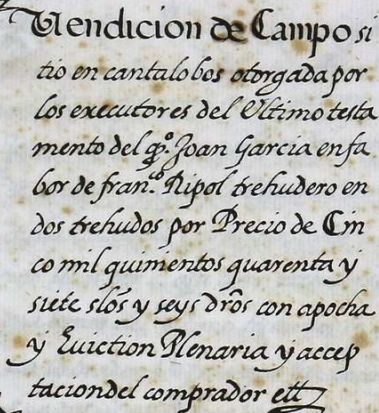 Vendicion de Campo si
tio en cantalobos otorgada por
los executores del Ultimo testa
mento del qº. Joan Garcia en fa
bor de fran.co Ripol trehudero en
dos trehudos por Precio de Cin
co mil quinientos quarenta y
siete slōs y seys drōs con apocha
y Euiction Plenaria y accep
tacion del comprador ett